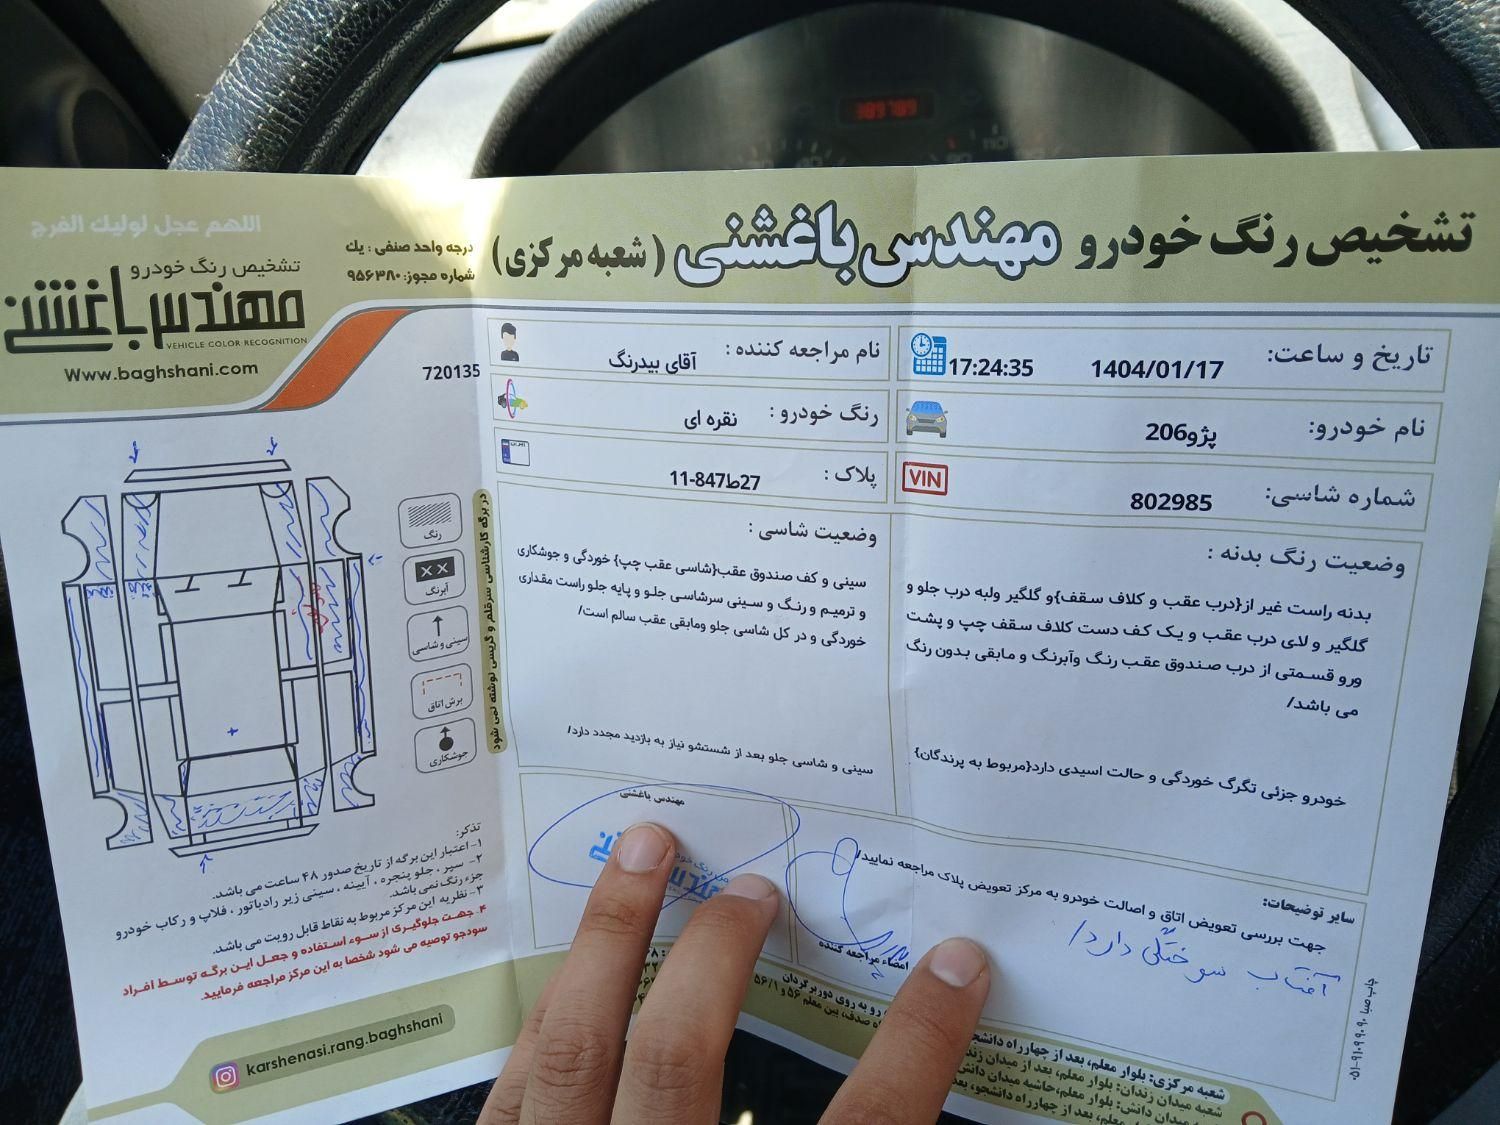 389789
تشخیص رنگ خودرو مهندس باغشنی (شعبه مرکزی)
درجه واحد صنفی : یك
شماره مجوز: ۹۵۶۳۸۰
اللهم عجل لولیك الفرج
تشخیص رنگ خودرو
مهندس باغشنی
VEHICLE COLOR RECOGNITION
Www.baghshani.com
720135
تاریخ و ساعت: 1404/01/17 17:24:35
نام مراجعه کننده : آقای بیدرنگ
نام خودرو: پژو206
رنگ خودرو : نقره ای
VIN
شماره شاسی: 802985
پلاک : 27ط847-11
وضعیت رنگ بدنه :
بدنه راست غیر از{درب عقب و کلاف سقف}و گلگیر ولبه درب جلو و
گلگیر و لای درب عقب و یک کف دست کلاف سقف چپ و پشت
ورو قسمتی از درب صندوق عقب رنگ وآبرنگ و مابقی بدون رنگ
می باشد/
خودرو جزئی تگرگ خوردگی و حالت اسیدی دارد{مربوط به پرندگان}
وضعیت شاسی :
سینی و کف صندوق عقب{شاسی عقب چپ} خوردگی و جوشکاری
و ترمیم و رنگ و سینی سرشاسی جلو و پایه جلو راست مقداری
خوردگی و در کل شاسی جلو ومابقی عقب سالم است/
سینی و شاسی جلو بعد از شستشو نیاز به بازدید مجدد دارد/
در برگه کارشناسی سرقلم و گریسی نوشته نمی شود
رنگ
آبرنگ
سینی و شاسی
برش اتاق
جوشکاری
سایر توضیحات:
جهت بررسی تعویض اتاق و اصالت خودرو به مرکز تعویض پلاک مراجعه نمایید/
آفتاب سوختگی دارد/
مهندس باغشنی
امضاء مراجعه کننده
تذکر:
۱- اعتبار این برگه از تاریخ صدور ۴۸ ساعت می باشد.
۲- سپر ، جلو پنجره ، آیینه ، سینی زیر رادیاتور ، فلاپ و رکاب خودرو
جزء رنگ نمی باشد.
۳- نظریه این مرکز مربوط به نقاط قابل رویت می باشد.
۴. جهت جلوگیری از سوء استفاده و جعل این برگه توسط افراد
سودجو توصیه می شود شخصا به این مرکز مراجعه فرمایید.
karshenasi.rang.baghshani
شعبه مرکزی: بلوار معلم، بعد از چهارراه دانشجو
رو به روی دوربرگردان
شعبه میدان زندان: بلوار معلم، بعد از میدان
صدف، بین معلم ۵۶ و ۵۶/۱
میدان دانش: بلوار معلم،حاشیه میدان
معلم، بعد از چهارراه دانشجو،
چاپ صبا ۰۵۱-۹۱۰۹۹۰۹۰